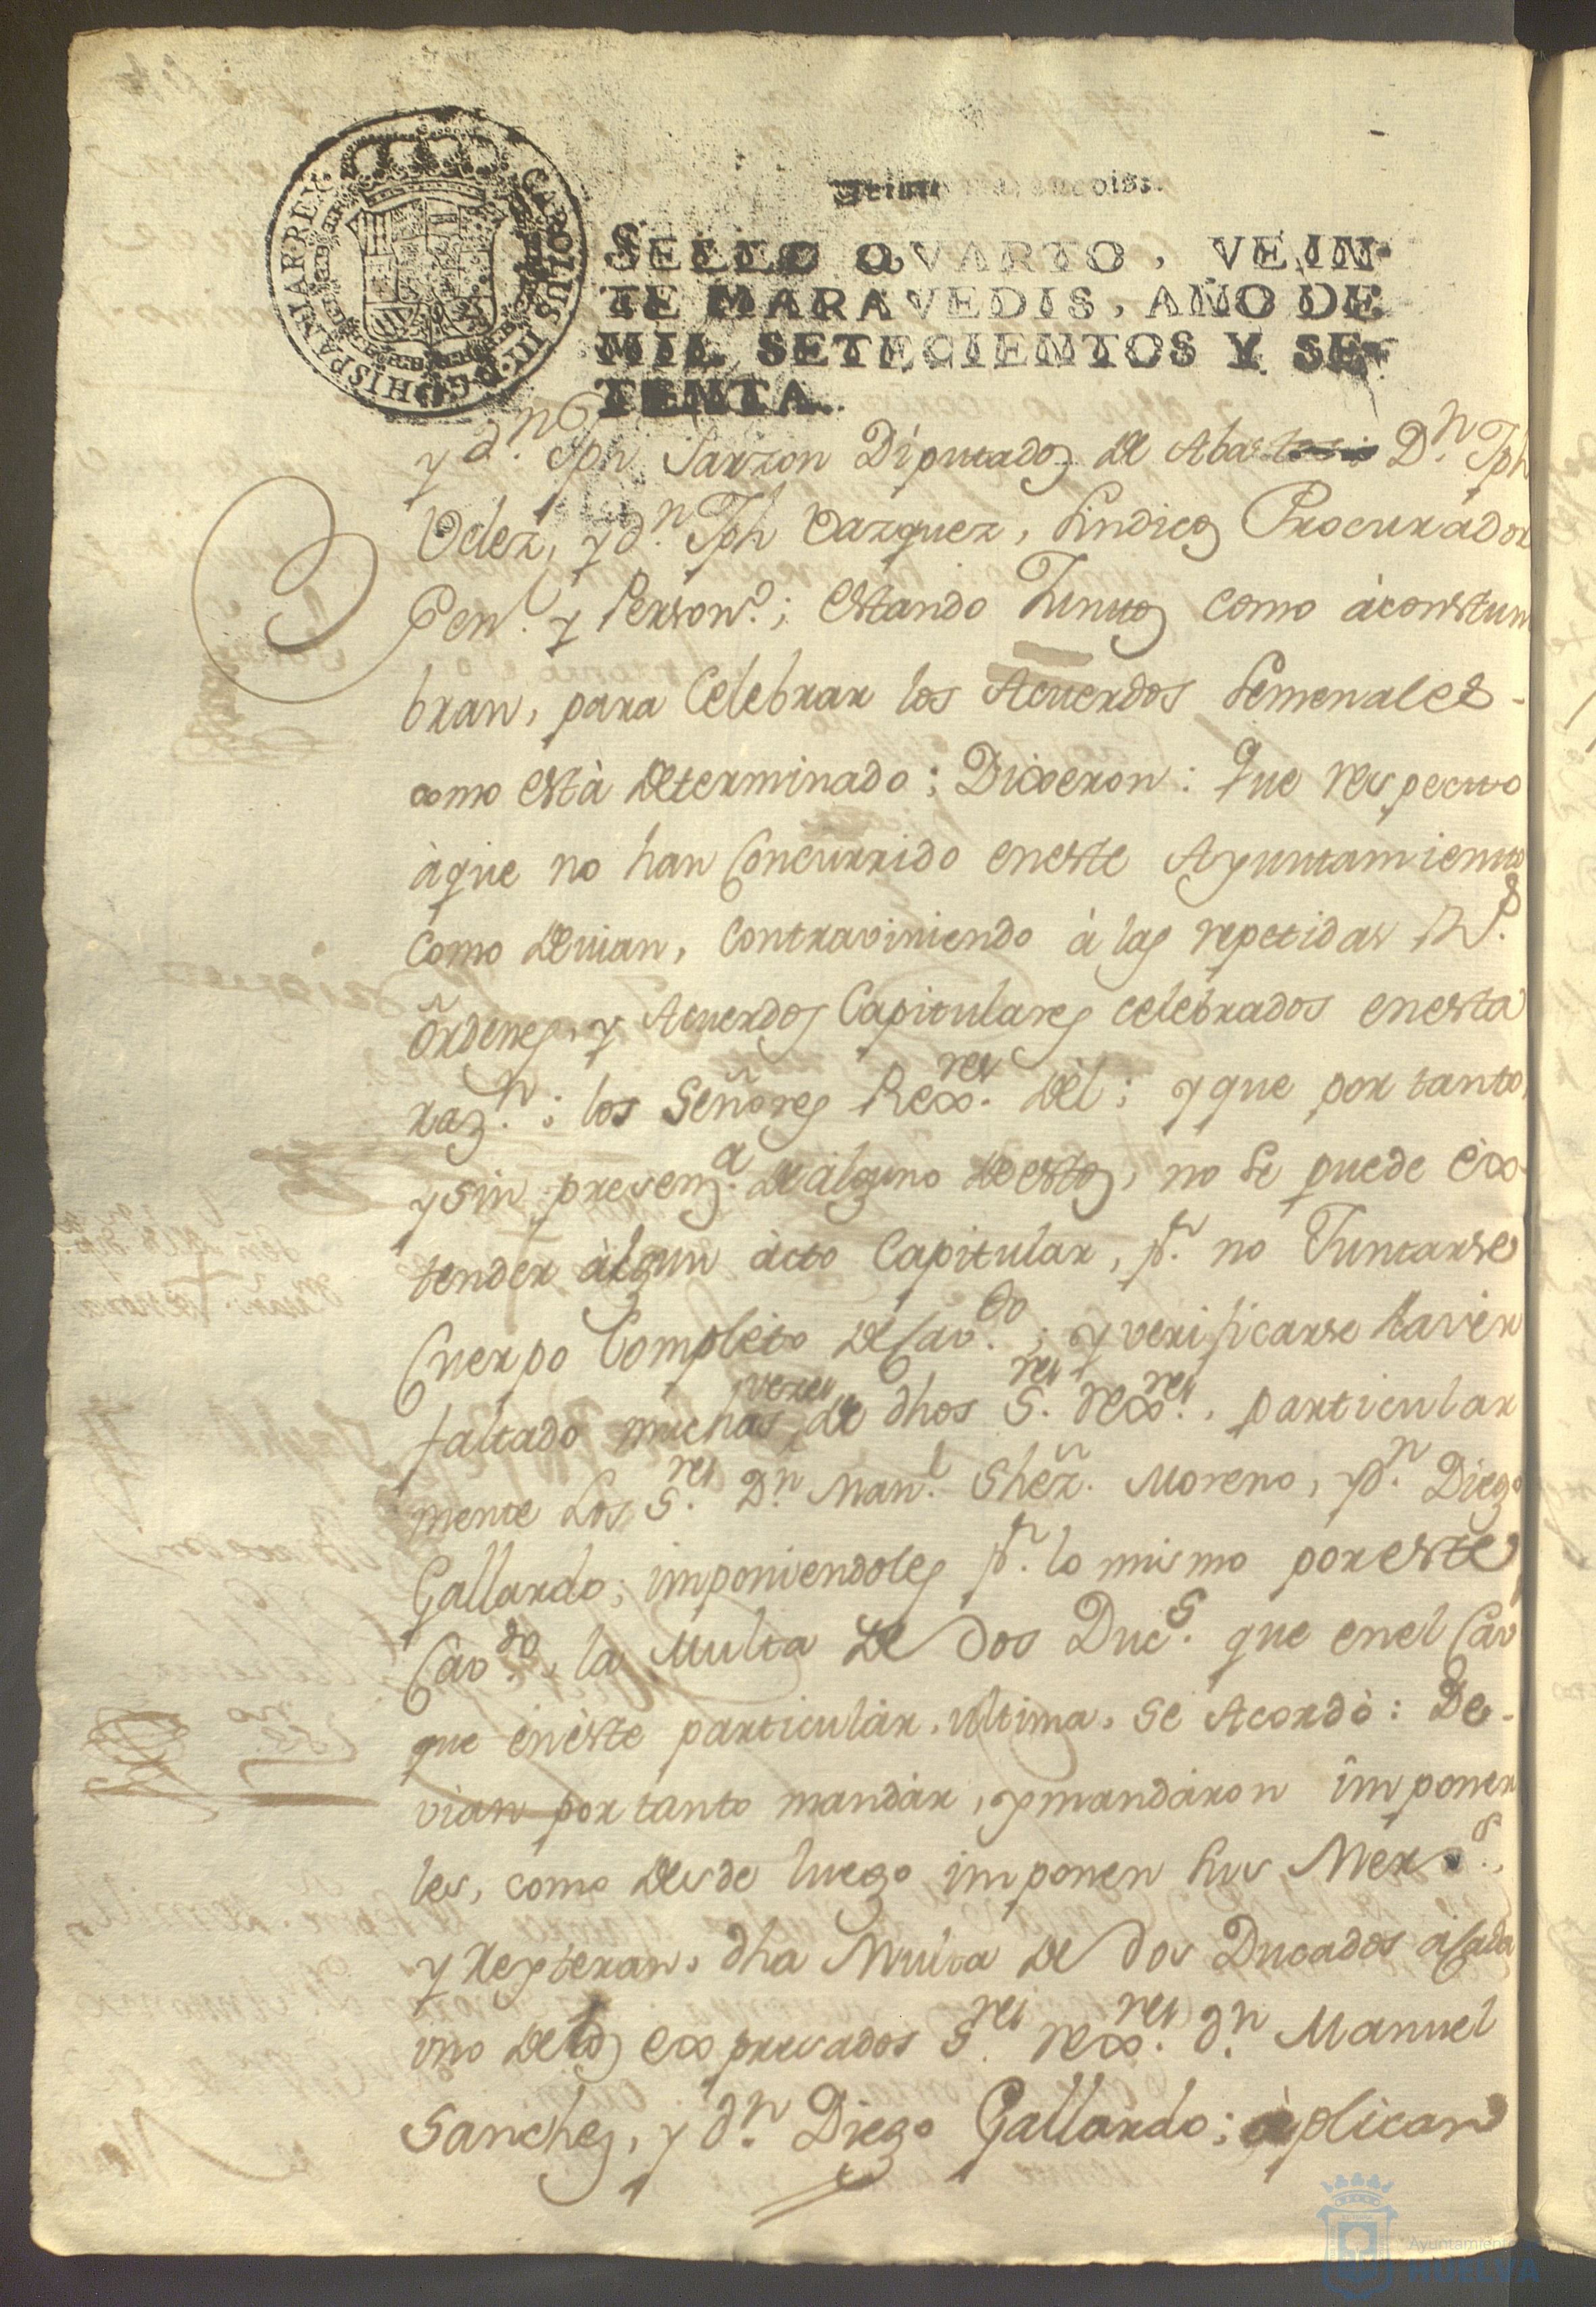 CAROLUS III D. G. HISPANIAR. REX.
SELLO QVARTO, VEIN-
TE MARAVEDIS, AÑO DE
MIL SETECIENTOS Y SE-
TENTA.
y dn. Jph Garzon Diputados de Abastos; Dn. Jph
Velez, y dn. Jph Vazquez, Sindicos Procurador
Genl. y Persono.; estando Juntos como àcostum
bran, para Celebrar los Acuerdos Semenales-
como està determinado; Dixeron: Que respecto
àque no han Concurrido eneste Ayuntamiento
como devian, contraviniendo à las repetidas Rs.
Ordenes, y Acuerdos Capitulares celebrados enesta
razn.; los Señores Rexres. dèl; y que por tanto,
y sin presenza. de alguno deestos, no se puede èx-
tender àlgun àcto Capitular, pr. no Juntarse
Cuerpo Completo deCavdo.; y verificarse haver
faltado muchas vezes de dhos Sres. Rexres., particular
mente Los Sres. Dn. Manl. Shez. Moreno, y Dn. Diego
Gallardo; imponiendoles pr. lo mismo poreste
Cavdo., la Multa de dos Ducs. que enel Cav
que èneste particular, ultima, se Acordò: De-
vian por tanto mandàr, y mandàron imponer
les, como desde luego imponen sus Mercs.,
y Repiteran, dha Multa de dos Ducados àCada
uno delos expresados Sres. Rexres. dn. Manuel
Sanchez, y dn. Diego Gallardo; àplican
Ayuntamiento
HUELVA